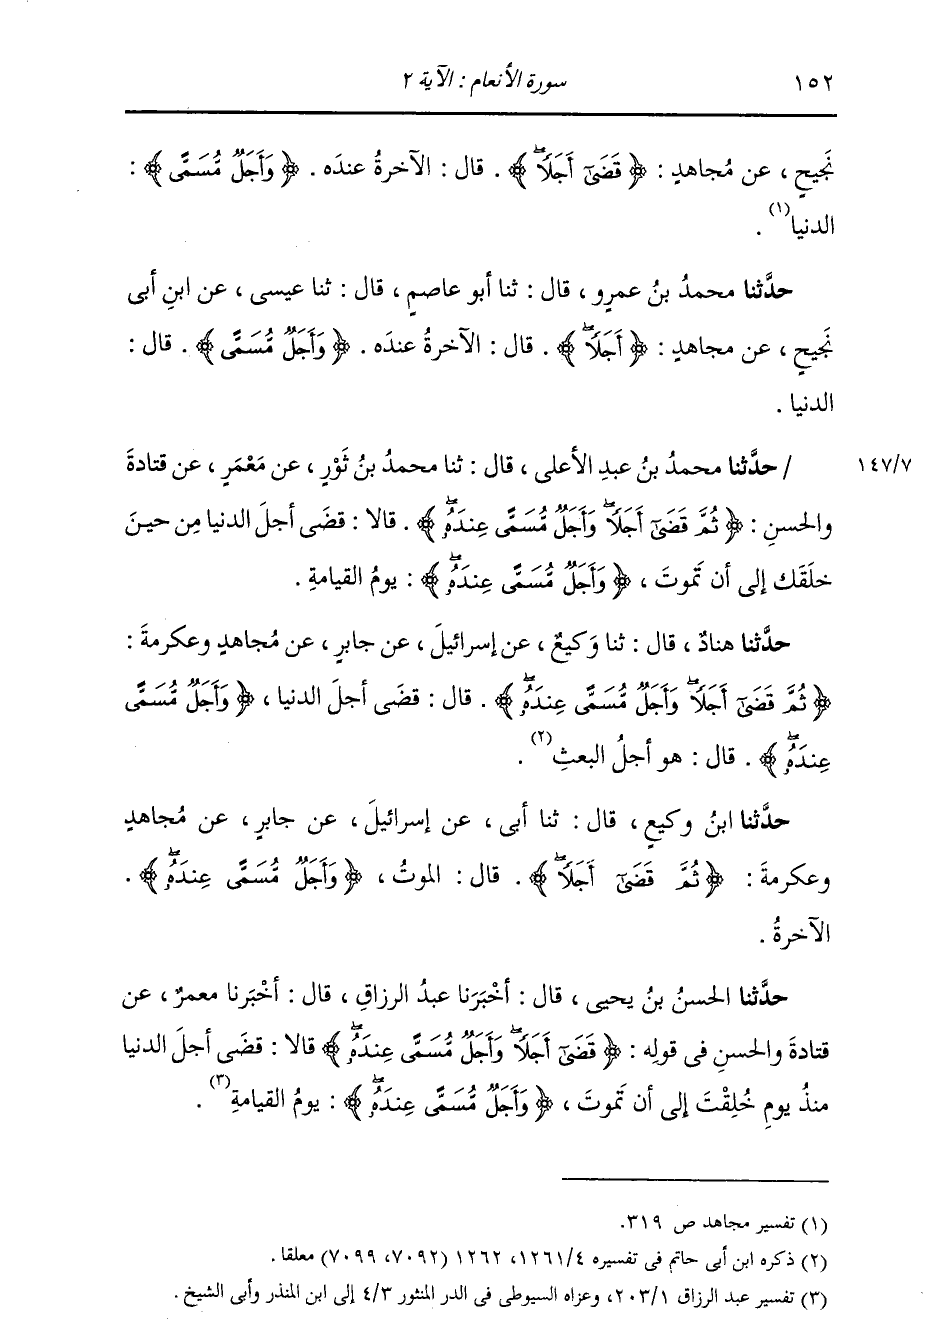 ١٥٢ سورة الأنعام : الآية ٢
نَجيحٍ ، عن مُجاهدٍ : ﴿ قَضَىٰٓ أَجَلًاۖ ﴾ . قال : الآخرةُ عندَه . ﴿ وَأَجَلٌ مُّسَمًّى ﴾ :
الدنيا(١) .
حدَّثنا محمدُ بنُ عمرٍو ، قال : ثنا أبو عاصمٍ ، قال : ثنا عيسى ، عن ابنِ أبى
نَجيحٍ ، عن مجاهدٍ : ﴿ أَجَلًاۖ ﴾ . قال : الآخرةُ عندَه . ﴿ وَأَجَلٌ مُّسَمًّى ﴾ . قال :
الدنيا .
١٤٧/٧ / حدَّثنا محمدُ بنُ عبدِ الأعلى ، قال : ثنا محمدُ بنُ ثَوْرٍ ، عن مَعْمَرٍ ، عن قتادةَ
والحسنِ : ﴿ ثُمَّ قَضَىٰٓ أَجَلًاۖ وَأَجَلٌ مُّسَمًّى عِندَهُۥۖ ﴾ . قالا : قضَى أجلَ الدنيا مِن حينَ
خلَقَك إلى أن تَموتَ ، ﴿ وَأَجَلٌ مُّسَمًّى عِندَهُۥۖ ﴾ : يومُ القيامةِ .
حدَّثنا هنادٌ ، قال : ثنا وَكيعٌ ، عن إسرائيلَ ، عن جابرٍ ، عن مُجاهدٍ وعكرمةَ :
﴿ ثُمَّ قَضَىٰٓ أَجَلًاۖ وَأَجَلٌ مُّسَمًّى عِندَهُۥۖ ﴾ . قال : قضَى أجلَ الدنيا ، ﴿ وَأَجَلٌ مُّسَمًّى
عِندَهُۥۖ ﴾ . قال : هو أجلُ البعثِ(٢) .
حدَّثنا ابنُ وكيعٍ ، قال : ثنا أبى ، عن إسرائيلَ ، عن جابرٍ ، عن مُجاهدٍ
وعكرمةَ : ﴿ ثُمَّ قَضَىٰٓ أَجَلًاۖ ﴾ . قال : الموتُ ، ﴿ وَأَجَلٌ مُّسَمًّى عِندَهُۥۖ ﴾ .
الآخرةُ .
حدَّثنا الحسنُ بنُ يحيى ، قال : أخْبَرَنا عبدُ الرزاقِ ، قال : أخْبَرنا معمرٌ ، عن
قتادةَ والحسنِ فى قولِه : ﴿ قَضَىٰٓ أَجَلًاۖ وَأَجَلٌ مُّسَمًّى عِندَهُۥۖ ﴾ قالا : قضَى أجلَ الدنيا
منذُ يومِ خُلِقْتَ إلى أن تَموتَ ، ﴿ وَأَجَلٌ مُّسَمًّى عِندَهُۥۖ ﴾ : يومُ القيامةِ(٣) .
(١) تفسير مجاهد ص ٣١٩.
(٢) ذكره ابن أبى حاتم فى تفسيره ١٢٦١/٤، ١٢٦٢ (٧٠٩٢، ٧٠٩٩) معلقا .
(٣) تفسير عبد الرزاق ٢٠٣/١، وعزاه السيوطى فى الدر المنثور ٤/٣ إلى ابن المنذر وأبى الشيخ .